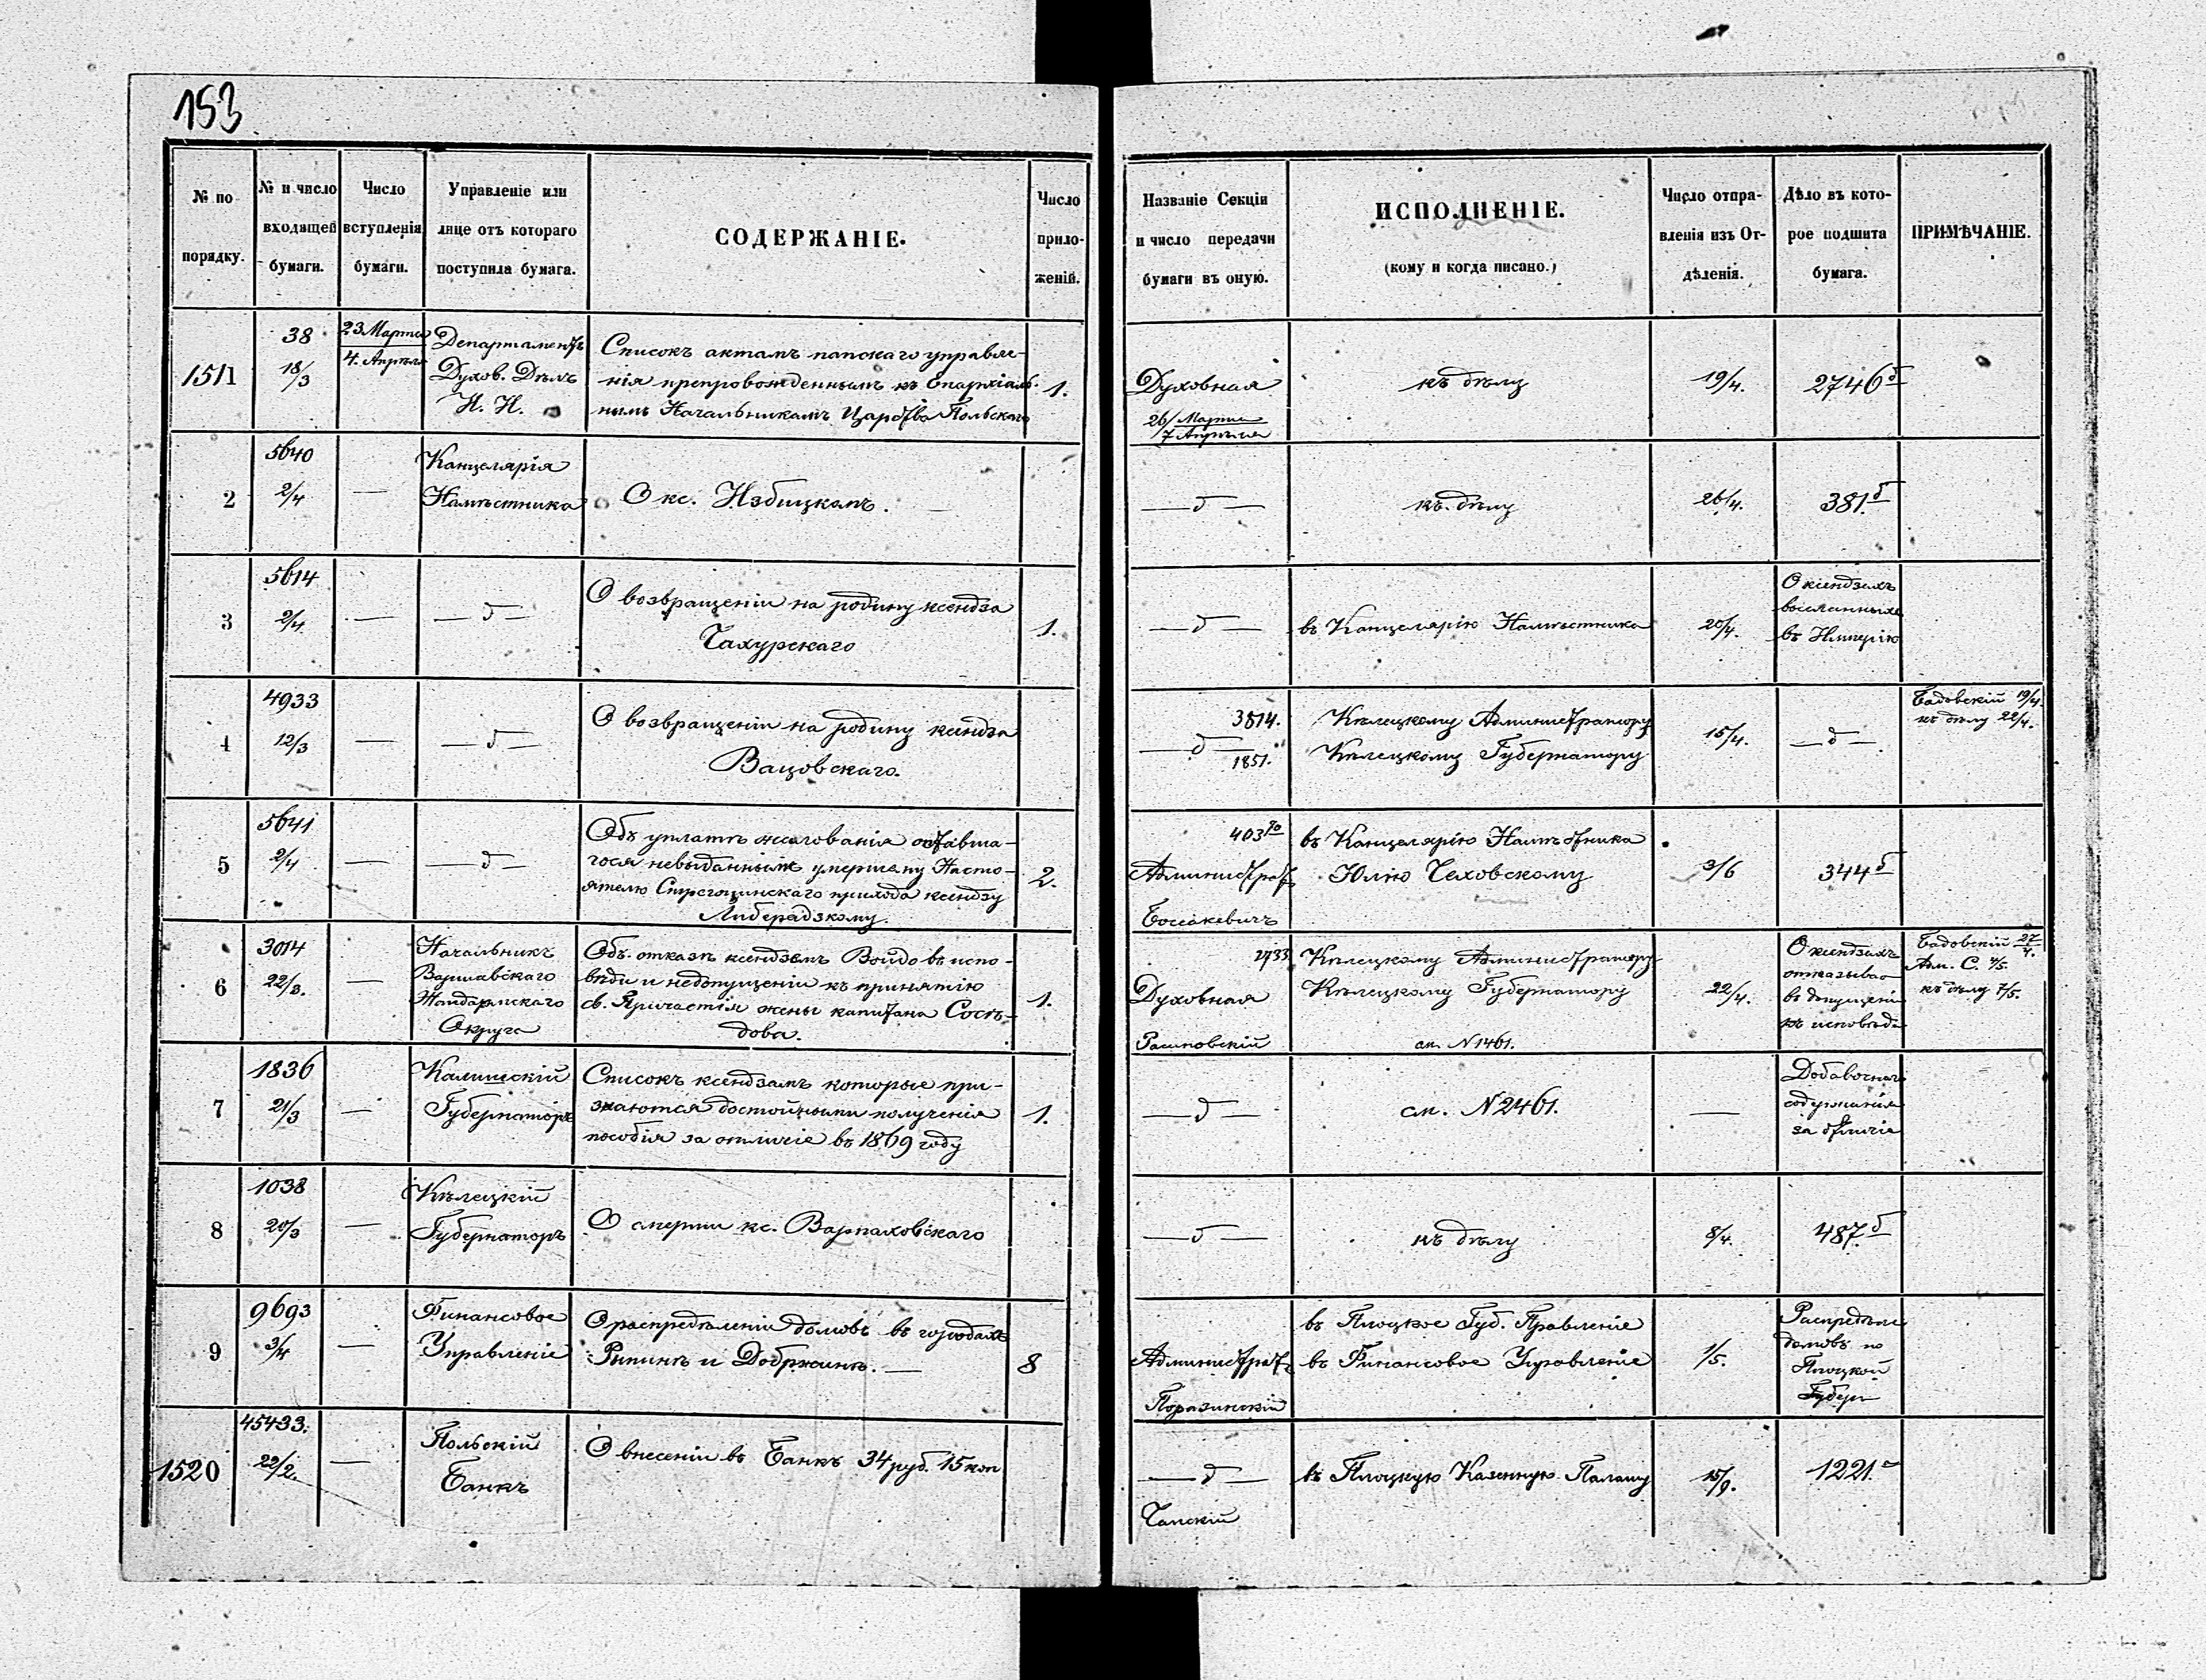 153
№ по порядку.
№ и число входящей бумаги.
Число вступленія бумаги.
Управленіе или лице отъ котораго поступила бумага.
СОДЕРЖАНІЕ.
Число приложеній.
Названіе Секціи и число передачи бумаги въ оную.
ИСПОЛНЕНІЕ.
(кому и когда писано.)
Число отправленія изъ Отдѣленія.
Дѣло въ которое подшита бумага.
ПРИМѢЧАНІЕ.
1511
38
18/3
23 Марта
4. Апрѣля
Департаментъ
Духов. Дѣлъ
И. И.
Списокъ актамъ папскаго управле-
нія препровожденнымъ къ Епархіаль-
нымъ Начальникамъ Царства Польскаго
1.
Духовная
26/ Марта
/7 Апрѣля
къ дѣлу
19/4.
2746 б
2
5640
2/4
—
Канцелярія
Намѣстника
О кс. Избицкомъ.
— д —
къ дѣлу
26/4.
381. б
3
5614
2/4
—
— д —
О возвращеніи на родину ксендза
Чахурскаго
1.
— д —
въ Канцелярію Намѣстника
20/4.
О ксендзахъ
высланныхъ
въ Имперію
4
4933
12/3
—
— д —
О возвращеніи на родину ксендза
Вацовскаго.
3814.
— д —
1851.
Кѣлецкому Администратору
Кѣлецкому Губернатору
15/4.
— д —
Бадовскій 19/4.
къ дѣлу 22/4.
5
5641
2/4
—
— д —
Объ уплатѣ жалованія оставша-
гося невыданнымъ умершему Насто-
ятелю прихода ксендзу
Либерадзкому.
2.
403
Администрат
Боссакевичъ
въ Канцелярію Намѣстника
Юлію Чеховскому
3/6
344 б
6
3014
22/3.
—
Начальникъ
Варшавскаго
Жандармскаго
Округа
Объ отказѣ ксендзомъ Войдо въ испо-
вѣди и недопущеніи къ принятію
св. Причастія жены капитана Сосѣ-
дова.
1.
2733
Духовная
Рашовскій
Кѣлецкому Администратору
Кѣлецкому Губернатору
см. N 1461.
22/4.
О ксендзахъ
отказыва
въ допущеніи
къ исповѣди
Бадовскій 27/4.
Адм. С. 4/5.
къ дѣлу 7/5.
7
1836
21/3
—
Калишскій
Губернаторъ
Списокъ ксендзамъ которые при-
знаются достойными полученія
пособія за отличіе въ 1869 году
1.
— д —
см. N 2461.
—
Добавочнаго
содержанія
за отличіе
8
1038
20/3
—
Кѣлецкій
Губернаторъ
О смерти кс. Варпаховскаго
— д —
къ дѣлу
8/4.
487. б
9
9693
3/4
—
Финансовое
Управленіе
О распредѣленіи домовъ въ городахъ
Рыпинѣ и Добржинѣ. —
8
Администрат
Поразинскій
въ Плоцкое Губ. Правленіе
въ Финансовое Управленіе
1/5.
Распредѣл
домовъ по
Плоцкой
Губерн
1520
45433.
22/2.
—
Польскій
Банкъ
О внесеніи въ Банкъ 34 руб. 15 коп
— д —
Чапскій
въ Плоцкую Казенную Палату
15/9.
1221.